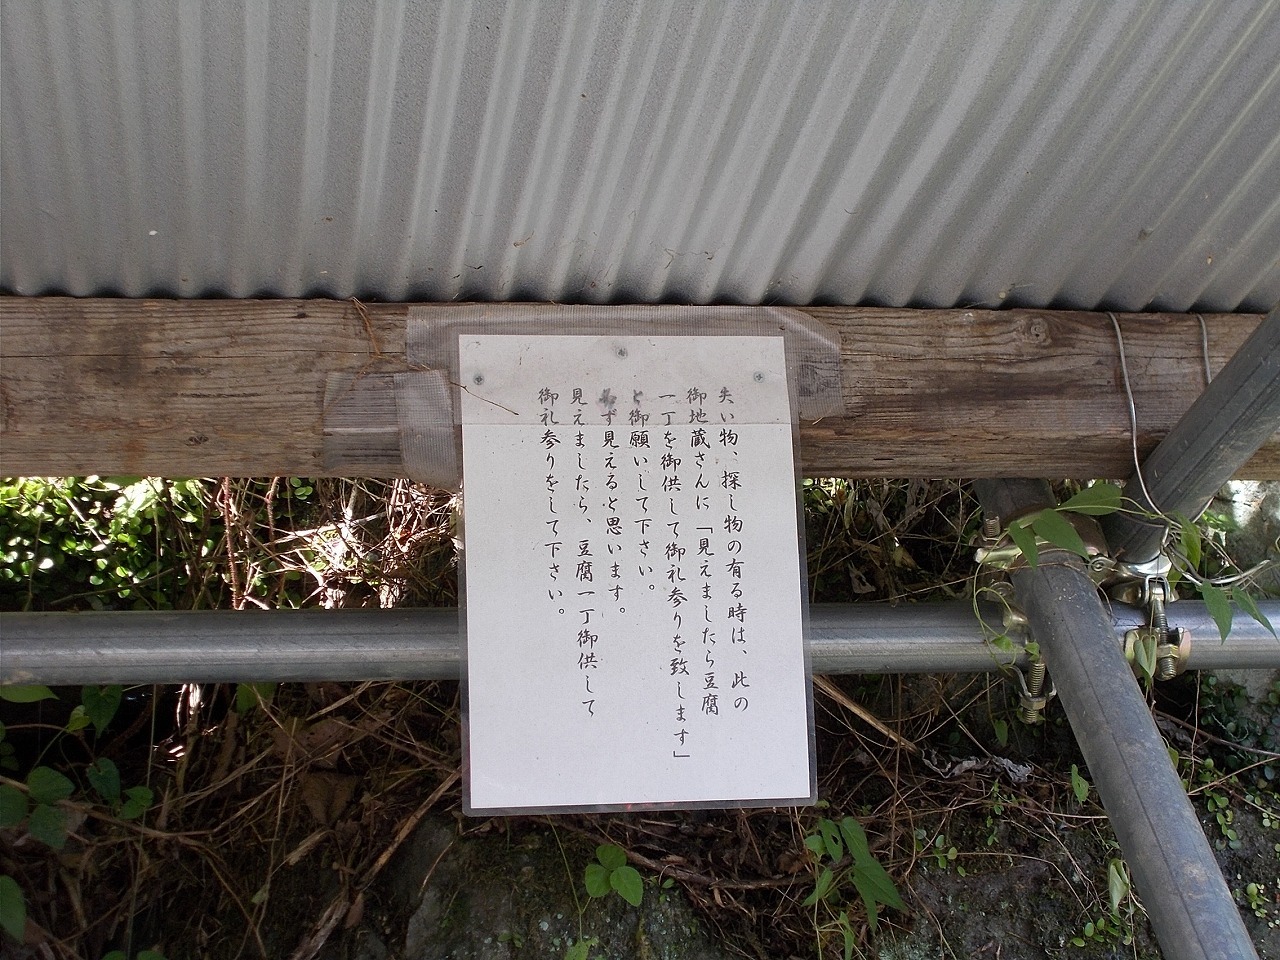 失い物、探し物の有る時は、此の
御地蔵さんに「見えましたら豆腐
一丁を御供して御礼参りを致します」
と御願いして下さい。
必ず見えると思います。
見えましたら、豆腐一丁御供して
御礼参りをして下さい。